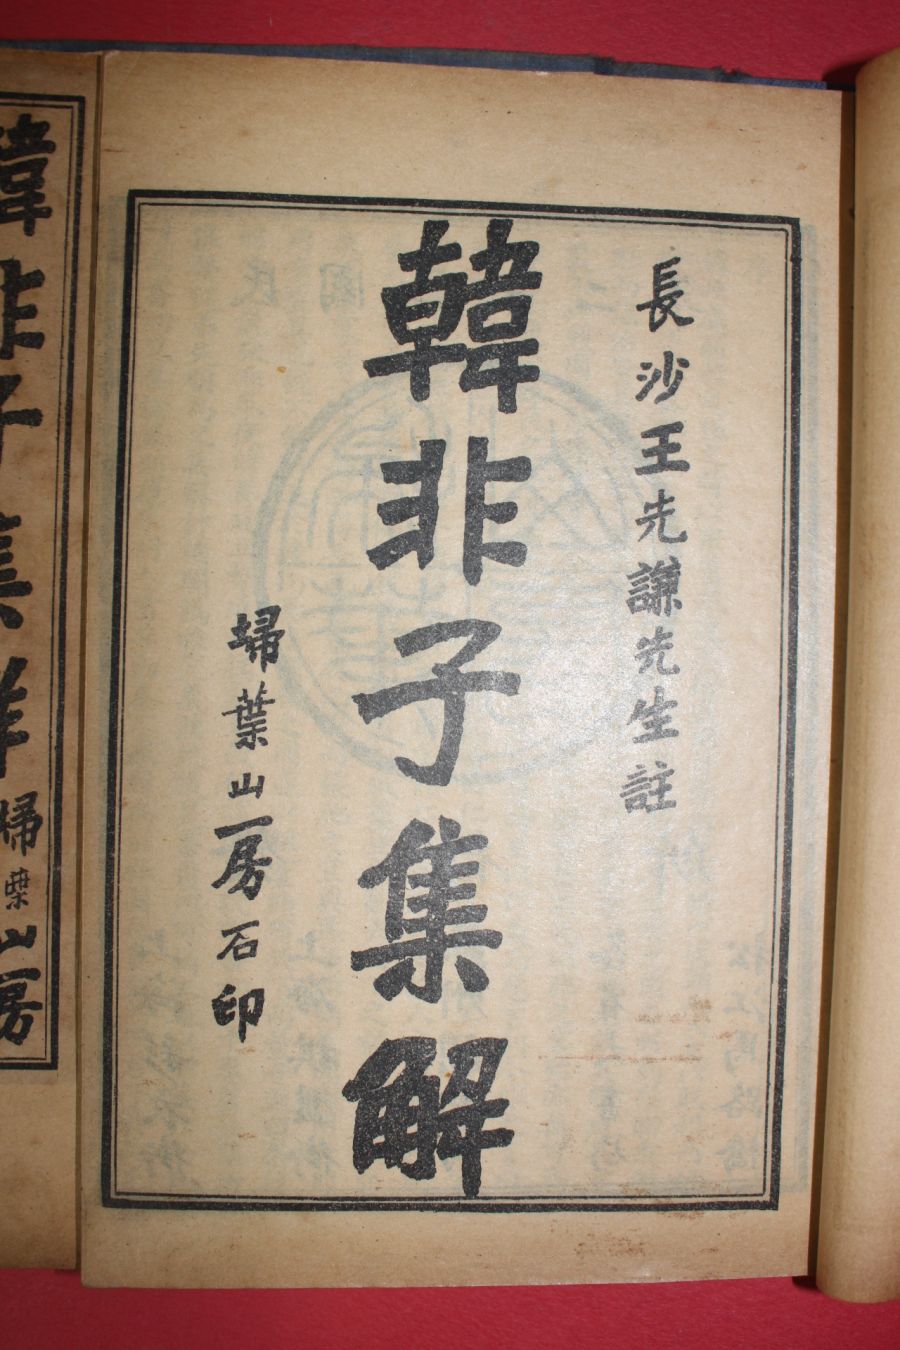 長沙王先謙先生註
韓非子集解
掃葉山房石印
韓非子集解
掃葉山房